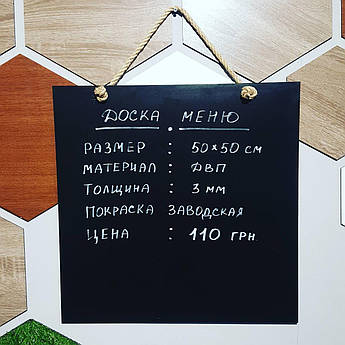 ДОСКА МЕНЮ
РАЗМЕР : 50×50 СМ
МАТЕРИАЛ : ДВП
ТОЛЩИНА : 3 ММ
ПОКРАСКА ЗАВОДСКАЯ
ЦЕНА : 110 ГРН